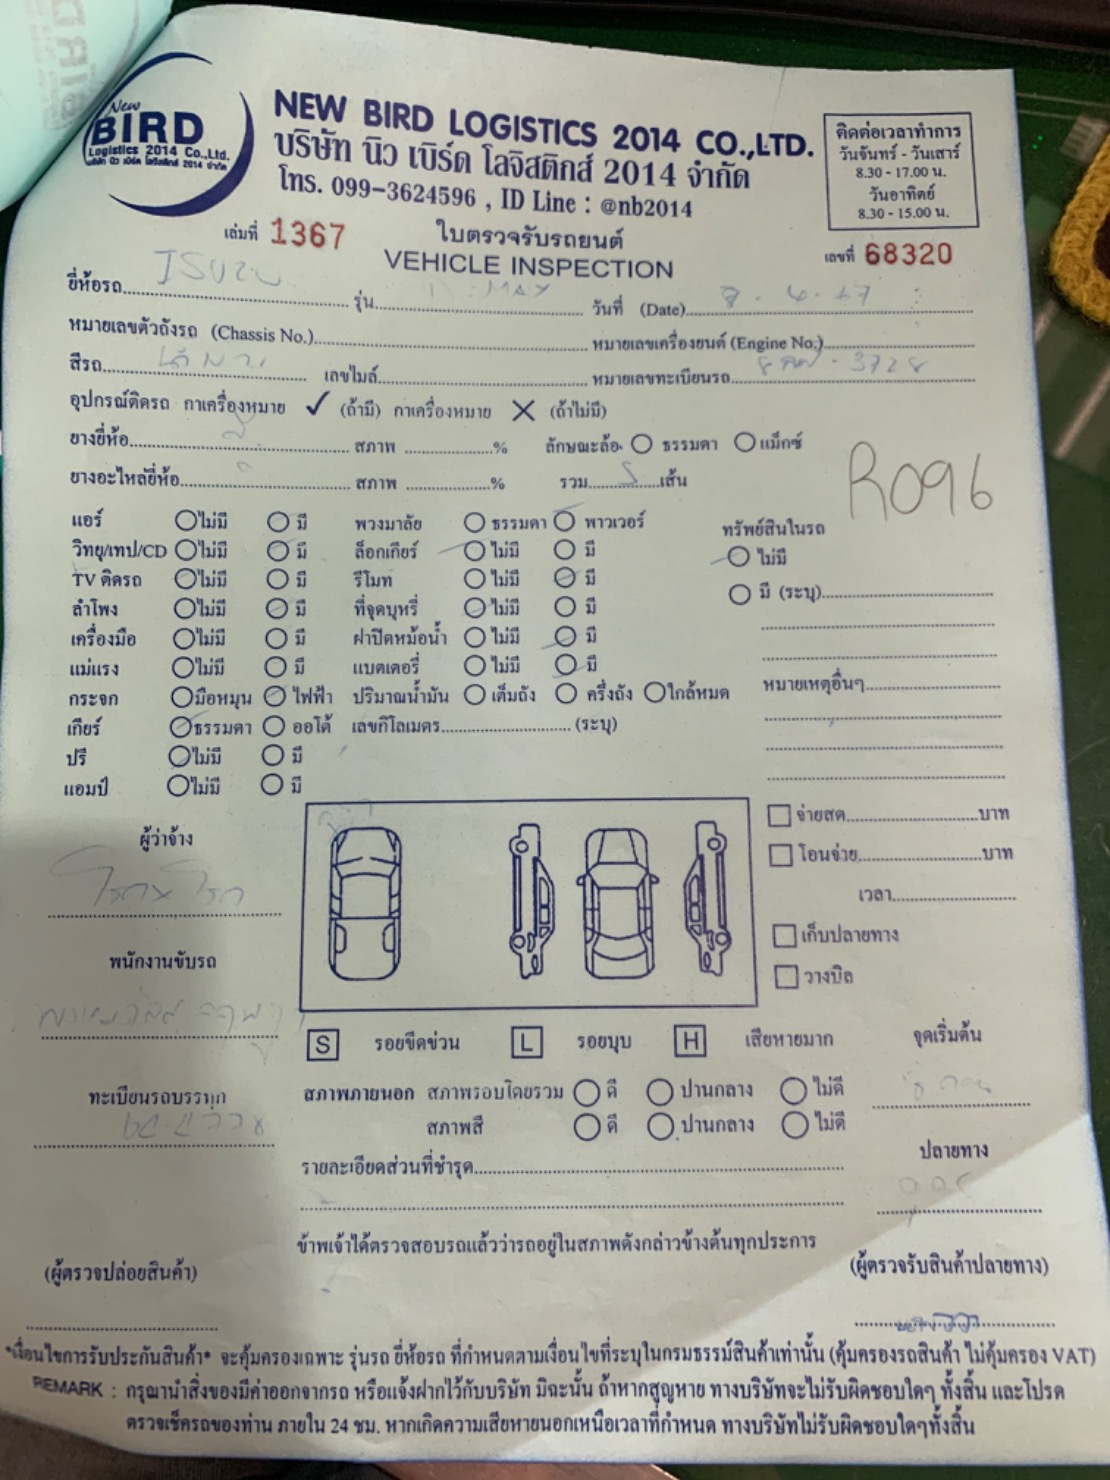 New
BIRD
Logistics 2014 Co.,Ltd.
บริษัท นิว เบิร์ด โลจิสติกส์ 2014 จำกัด
NEW BIRD LOGISTICS 2014 CO.,LTD.
บริษัท นิว เบิร์ด โลจิสติกส์ 2014 จำกัด
โทร. 099-3624596 , ID Line : @nb2014
ติดต่อเวลาทำการ
วันจันทร์ - วันเสาร์
8.30 - 17.00 น.
วันอาทิตย์
8.30 - 15.00 น.
เล่มที่ 1367 ใบตรวจรับรถยนต์ เลขที่ 68320
VEHICLE INSPECTION
ยี่ห้อรถ ISUZU รุ่น MAX วันที่ (Date)
หมายเลขตัวถังรถ (Chassis No.) หมายเลขเครื่องยนต์ (Engine No.)
สีรถ เลขไมล์ หมายเลขทะเบียนรถ 3728
อุปกรณ์ติดรถ กาเครื่องหมาย ✓ (ถ้ามี) กาเครื่องหมาย ✕ (ถ้าไม่มี)
ยางยี่ห้อ สภาพ % ลักษณะล้อ ธรรมดา แม็กซ์
ยางอะไหล่ยี่ห้อ สภาพ % รวม 5 เส้น
R096
แอร์ ไม่มี มี พวงมาลัย ธรรมดา พาวเวอร์
วิทยุ/เทป/CD ไม่มี มี ล็อกเกียร์ ไม่มี มี
TV ติดรถ ไม่มี มี รีโมท ไม่มี มี
ลำโพง ไม่มี มี ที่จุดบุหรี่ ไม่มี มี
เครื่องมือ ไม่มี มี ฝาปิดหม้อน้ำ ไม่มี มี
แม่แรง ไม่มี มี แบตเตอรี่ ไม่มี มี
กระจก มือหมุน ไฟฟ้า ปริมาณน้ำมัน เต็มถัง ครึ่งถัง ใกล้หมด
เกียร์ ธรรมดา ออโต้ เลขกิโลเมตร (ระบุ)
ปรี ไม่มี มี
แอมป์ ไม่มี มี
ทรัพย์สินในรถ
ไม่มี
มี (ระบุ)
หมายเหตุอื่นๆ
จ่ายสด บาท
โอนจ่าย บาท
เวลา
เก็บปลายทาง
วางบิล
ผู้ว่าจ้าง
พนักงานขับรถ
ทะเบียนรถบรรทุก
S รอยขีดข่วน L รอยบุบ H เสียหายมาก
จุดเริ่มต้น
สภาพภายนอก สภาพรอบโดยรวม ดี ปานกลาง ไม่ดี
สภาพสี ดี ปานกลาง ไม่ดี
ปลายทาง
รายละเอียดส่วนที่ชำรุด
ข้าพเจ้าได้ตรวจสอบรถแล้วว่ารถอยู่ในสภาพดังกล่าวข้างต้นทุกประการ
(ผู้ตรวจปล่อยสินค้า) (ผู้ตรวจรับสินค้าปลายทาง)
*เงื่อนไขการรับประกันสินค้า* จะคุ้มครองเฉพาะ รุ่นรถ ยี่ห้อรถ ที่กำหนดตามเงื่อนไขที่ระบุในกรมธรรม์สินค้าเท่านั้น (คุ้มครองรถสินค้า ไม่คุ้มครอง VAT)
REMARK : กรุณานำสิ่งของมีค่าออกจากรถ หรือแจ้งฝากไว้กับบริษัท มิฉะนั้น ถ้าหากสูญหาย ทางบริษัทจะไม่รับผิดชอบใดๆ ทั้งสิ้น และโปรด
ตรวจเช็ครถของท่าน ภายใน 24 ชม. หากเกิดความเสียหายนอกเหนือเวลาที่กำหนด ทางบริษัทไม่รับผิดชอบใดๆทั้งสิ้น